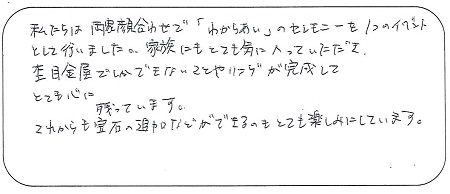 私たちは両家顔合わせで「わかちあい」のセレモニーを1つのイベント
として行いました。家族にもとても気に入っていただき、
杢目金屋でしかできないことやリングが完成して
とても心に
残っています。
これからも宝石の追加などができるのもとても楽しみにしています。